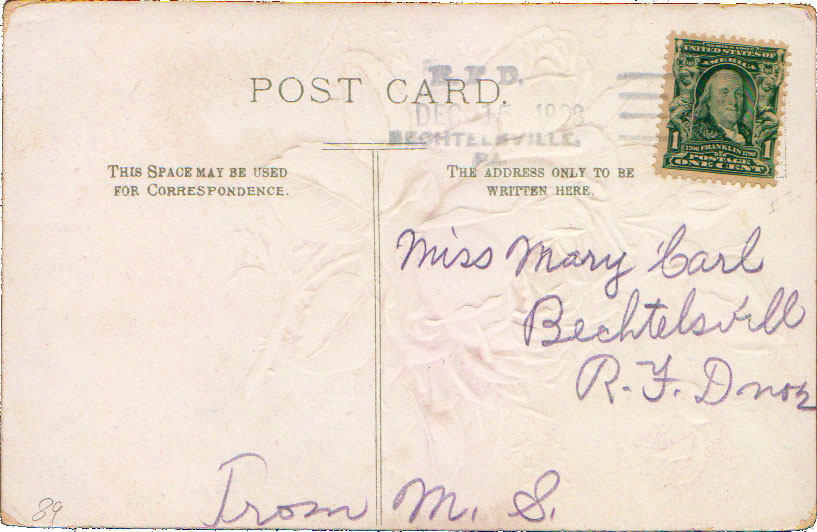 POST CARD.
R. F. D.
DEC 16 1908
BECHTELSVILLE,
PA.
UNITED STATES OF
AMERICA
1 1706 FRANKLIN 1790 1
POSTAGE
ONE CENT
THIS SPACE MAY BE USED
FOR CORRESPONDENCE.
THE ADDRESS ONLY TO BE
WRITTEN HERE.
Miss Mary Carl
Bechtelsvill
R. F. D no 2
From M. S.
89